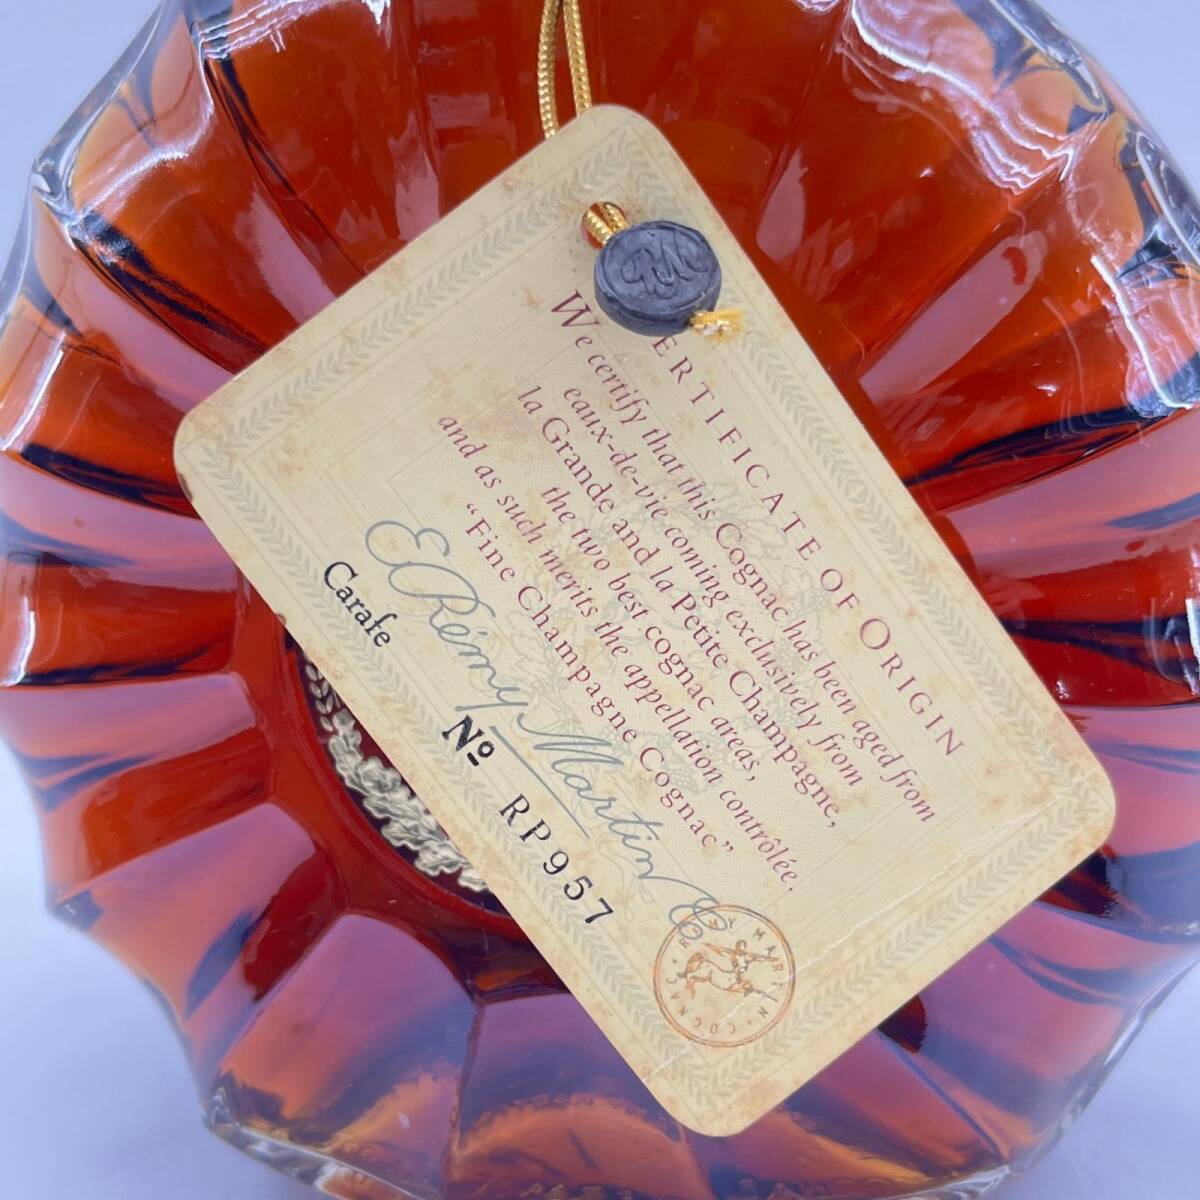 ERTIFICATE OF ORIGIN
We certify that this Cognac has been aged from
eaux-de-vie coming exclusively from
la Grande and la Petite Champagne,
the two best cognac areas,
and as such merits the appellation contrôlée.
“Fine Champagne Cognac”
E. Rémy Martin & C
Carafe
Nº RP957
RÉMY MARTIN • COGNAC •